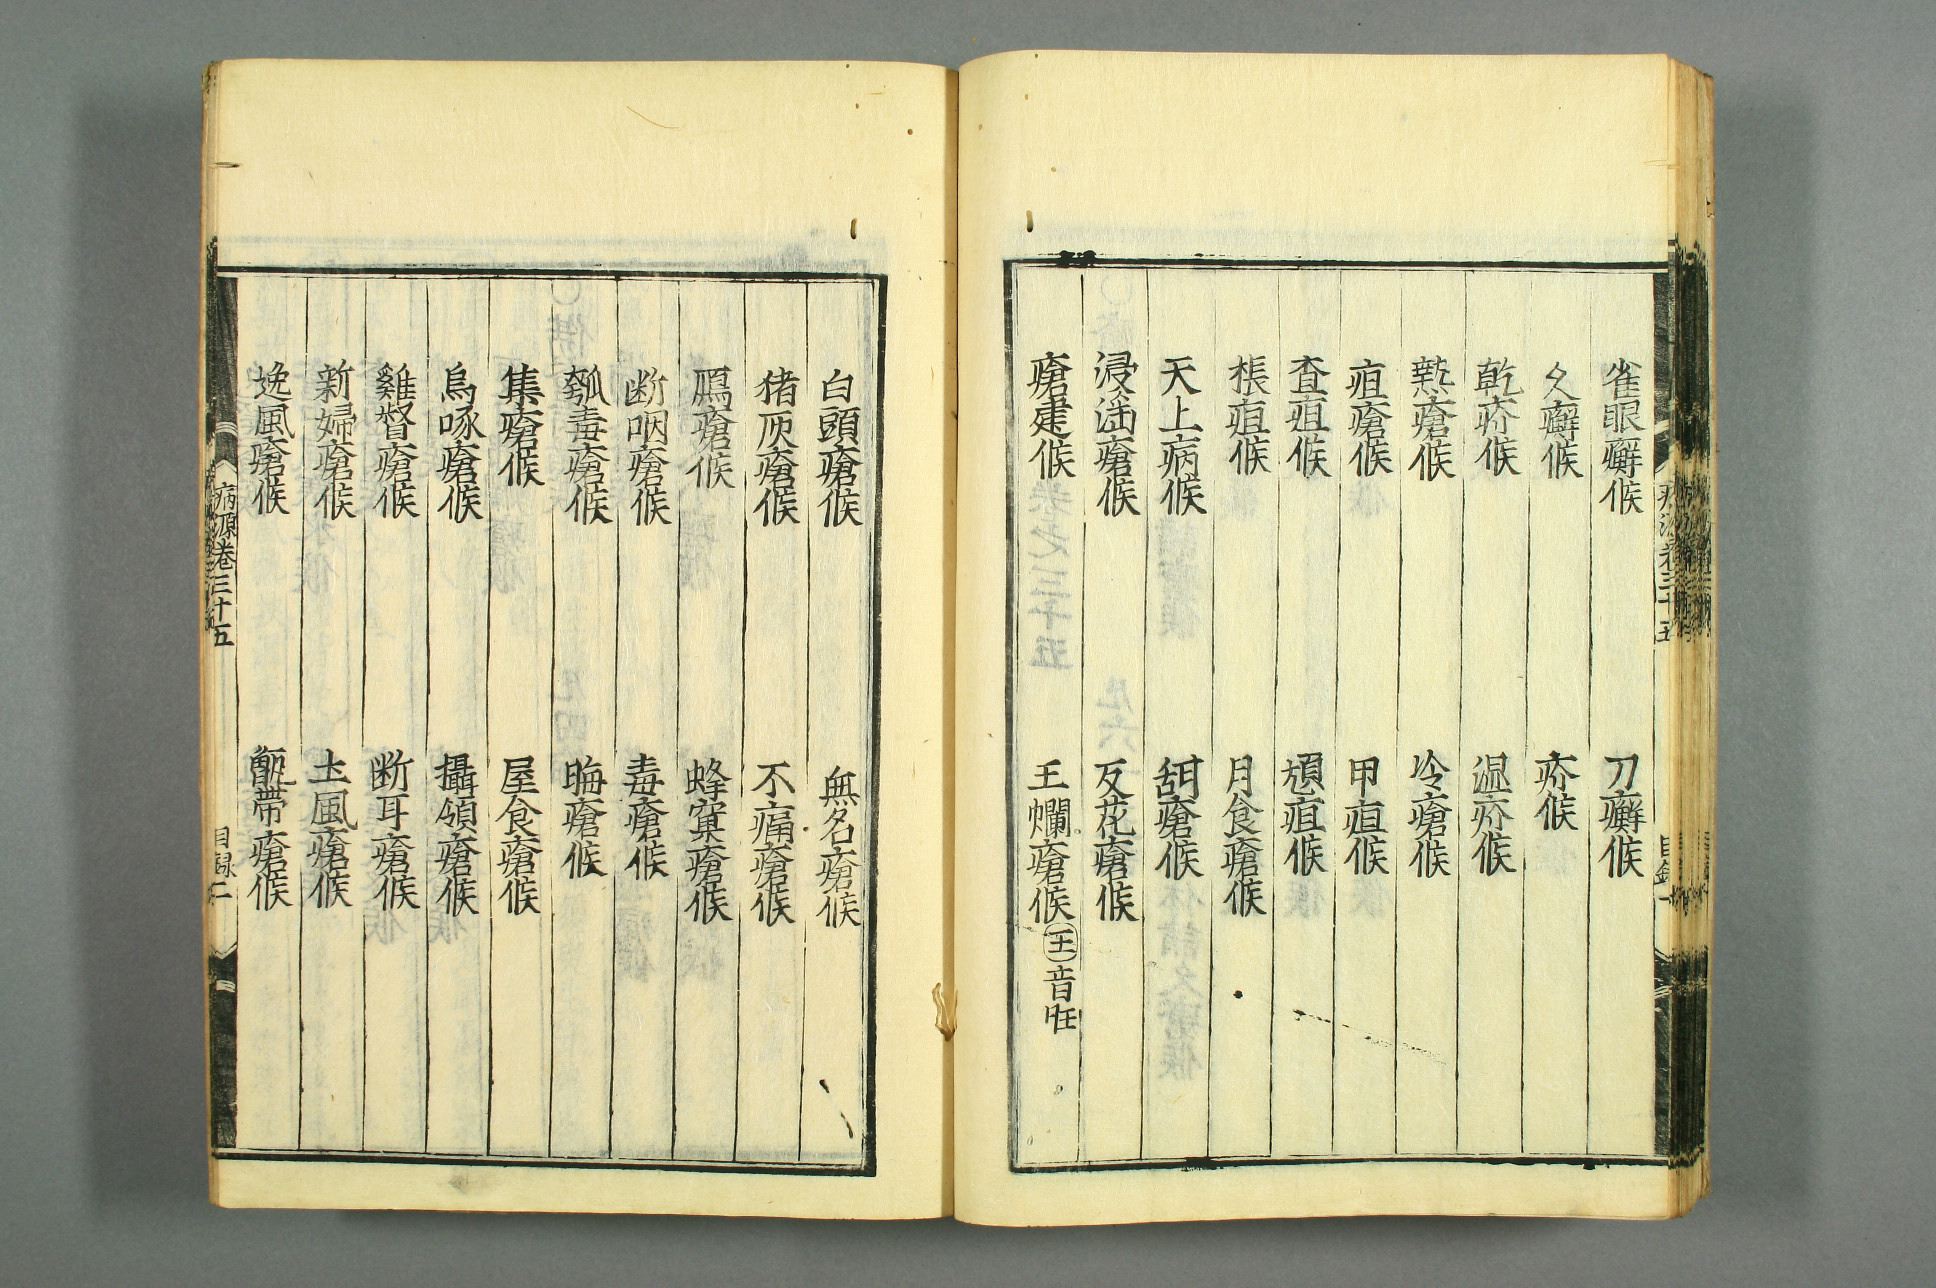 雀眼癬候 刀癬候
久癬候 疥候
乾疥候 濕疥候
熱瘡候 冷瘡候
疽瘡候 甲疽候
查疽候 疽候
棖疽候 月食瘡候
天上病候 甜瘡候
浸淫瘡候 反花瘡候
瘡建候 王爛瘡候 王音旺
病源卷三十五 目錄一
白頭瘡候 無名瘡候
猪灰瘡候 不痛瘡候
鴈瘡候 蜂窠瘡候
断咽瘡候 毒瘡候
瓠毒瘡候 晦瘡候
集瘡候 屋食瘡候
烏啄瘡候 攝領瘡候
雞督瘡候 断耳瘡候
新婦瘡候 土風瘡候
逸風瘡候 甑帶瘡候
病源卷三十五 目録二